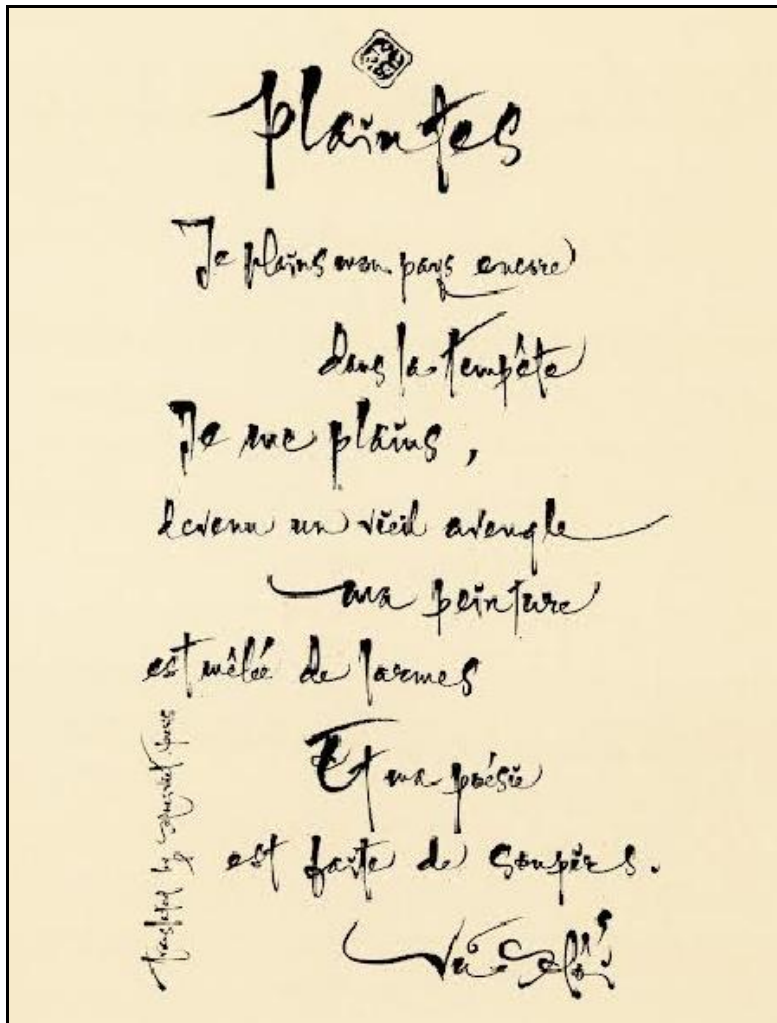 Plaintes
Je plains mon pays encore
dans la Tempête
Je me plains,
devenu un vieil aveugle
ma peinture
est mêlée de larmes
Et ma poésie
est faite de soupirs.
translated by